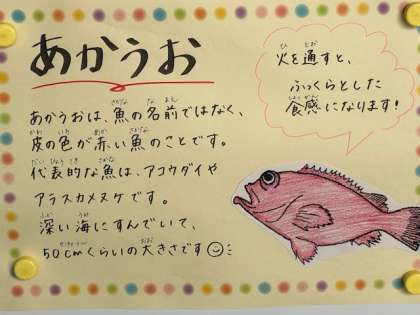 あかうお
あかうおは、魚の名前ではなく、
皮の色が赤い魚のことです。
代表的な魚は、アコウダイや
アラスカメヌケです。
深い海にすんでいて、
50cmくらいの大きさです
火を通すと、
ふっくらとした
食感になります!